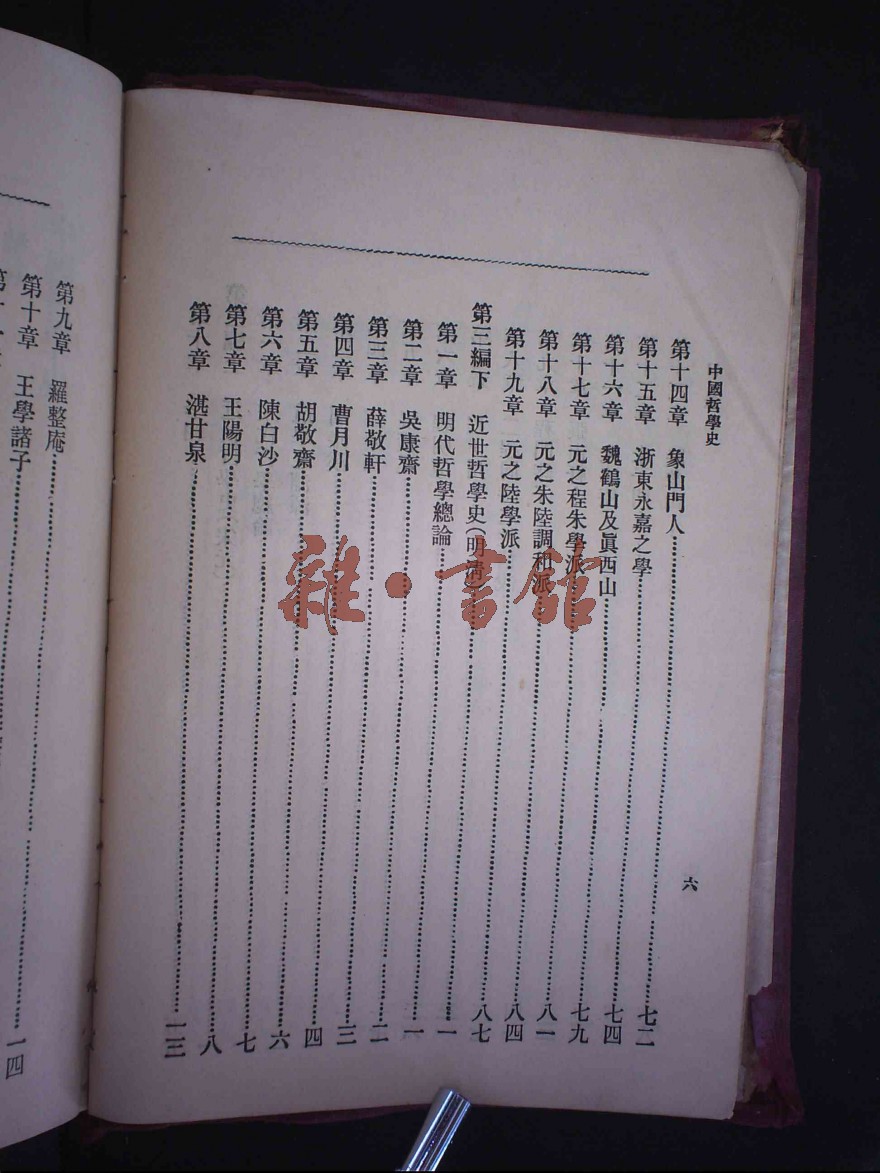 中國哲學史
六
第十四章 象山門人……七二
第十五章 浙東永嘉之學……七四
第十六章 魏鶴山及眞西山……七九
第十七章 元之程朱學派……八一
第十八章 元之朱陸調和派……八四
第十九章 元之陸學派……八七
第三編下 近世哲學史(明淸)……一
第一章 明代哲學總論……一
第二章 吳康齋……二
第三章 薛敬軒……三
第四章 曹月川……四
第五章 胡敬齋……六
第六章 陳白沙……七
第七章 王陽明……八
第八章 湛甘泉……一三
第九章 羅整庵……一四
第十章 王學諸子
雜·書館